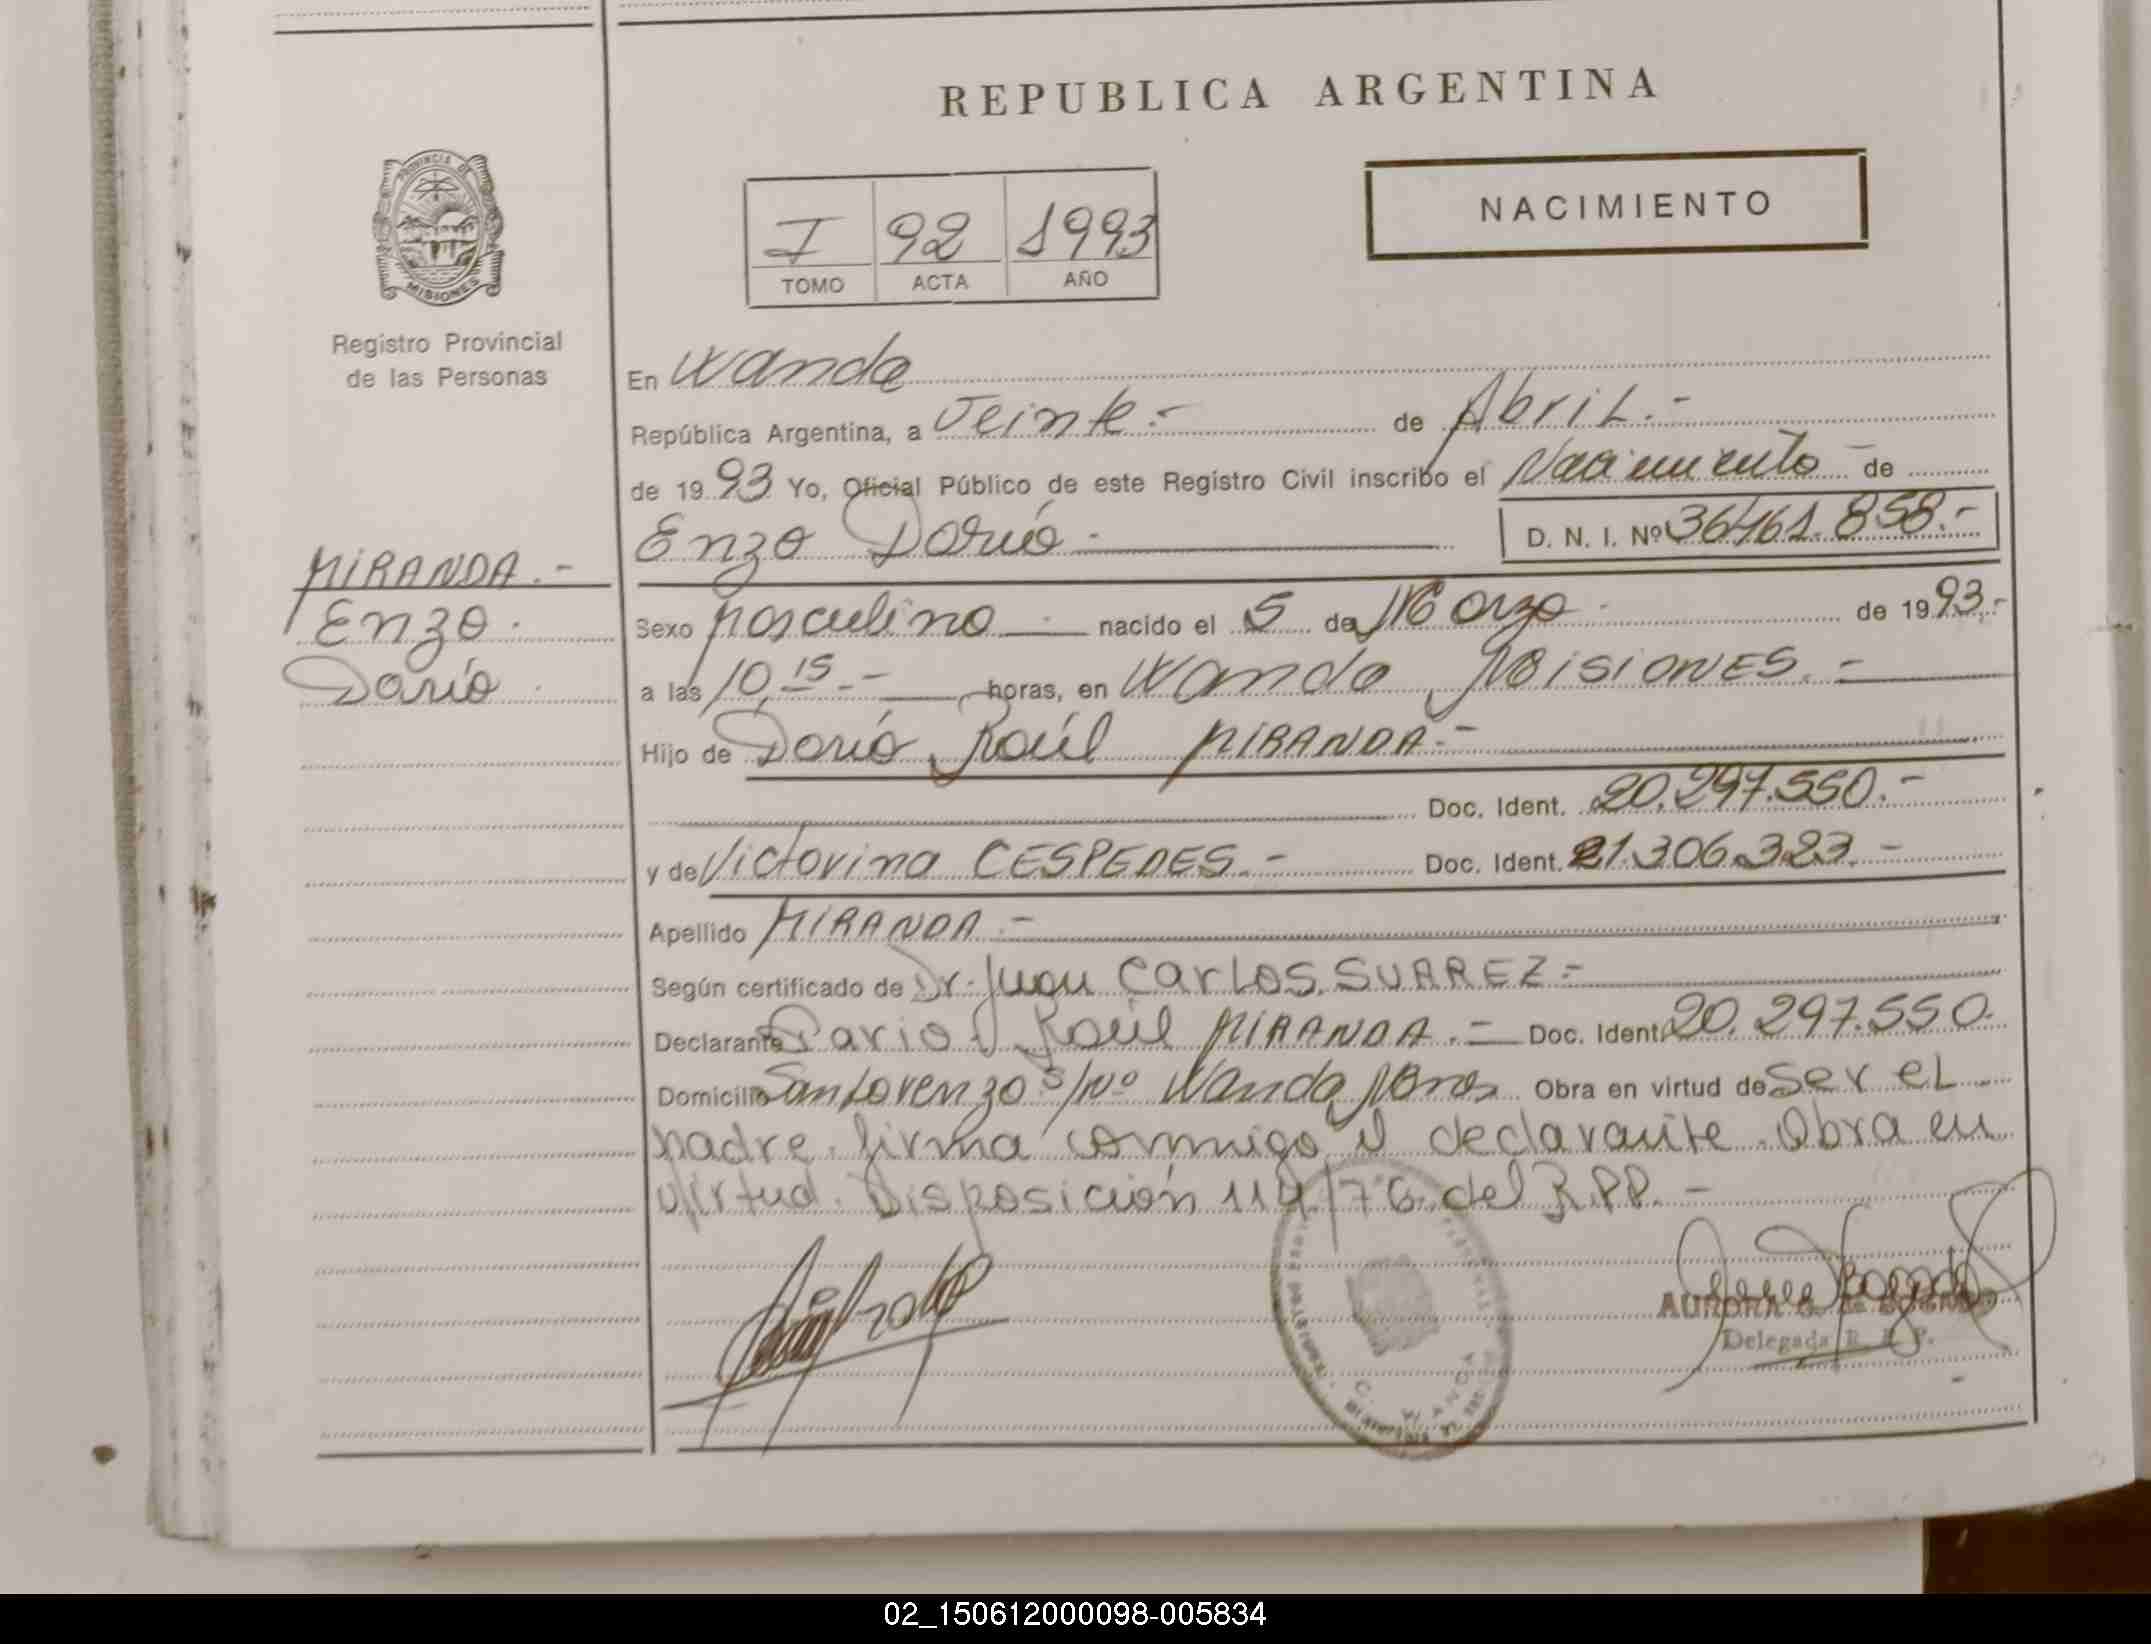 REPUBLICA ARGENTINA
NACIMIENTO
I 92 1993
TOMO ACTA AÑO
PROVINCIA DE
MISIONES
Registro Provincial
de las Personas
En Wanda
República Argentina, a Veinte.- de Abril.-
de 1993 Yo, Oficial Público de este Registro Civil inscribo el Nacimiento de
Enzo Darío.- D. N. I. Nº 36461.858.-
MIRANDA.-
Enzo.
Darío
Sexo Masculino nacido el 5 de Marzo de 1993.-
a las 10,15.- horas, en Wanda Misiones.-
Hijo de Darío Raúl MIRANDA.-
Doc. Ident. 20.297.550.-
y de Victorina CESPEDES.- Doc. Ident. 21.306.323.-
Apellido MIRANDA.-
Según certificado de Dr. Juan Carlos SUAREZ=
Declarante Dario Raúl MIRANDA.= Doc. Ident. 20.297.550.
Domicilio San Lorenzo s/Nº Wanda Mnes Obra en virtud de Ser el
padre. firma conmigo el declarante. Obra en
virtud. Disposición 114/76. del R.P.P.-
AURORA
Delegada R. P. P.
WANDA
02_150612000098-005834